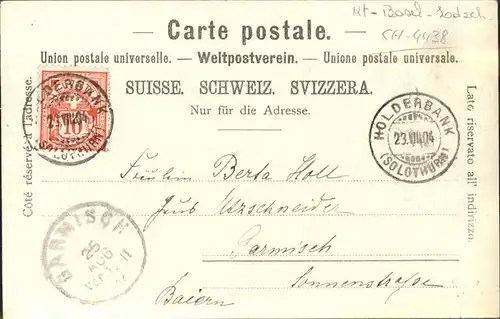 Mt-Basel-Ldsch
CH-4438
— Carte postale. —
Union postale universelle. — Weltpostverein. — Unione postale universale.
SUISSE. SCHWEIZ. SVIZZERA.
Nur für die Adresse.
Côté réservé à l'adresse.
Lato riservato all' indirizzo.
HOLDERBANK
29.VIII.04
(SOLOTHURN)
10
HOLDERBANK
29.VIII.04
(SOLOTHURN)
Fräulein Berta Holl
Haus Utzschneider
Garmisch
Sonnenstraße
Baiern
GARMISCH
25
AUG
Vor. 11